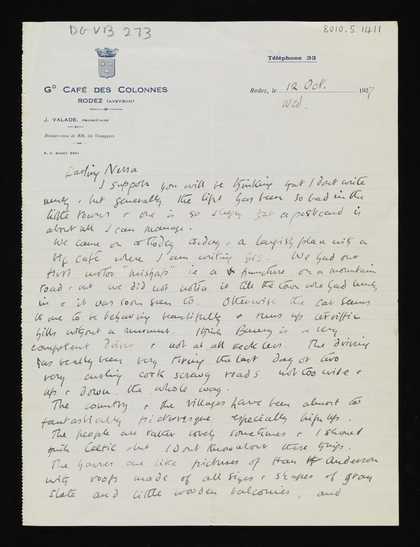 DG VB 273
8010.5.1411
Téléphone 33
Gᴰ CAFÉ DES COLONNES
RODEZ (AVEYRON)
J. VALADE, PROPRIÉTAIRE
Rendez-vous de MM. les Voyageurs
Rodez, le 12 Oct. 1927
Wed.
Darling Nessa
I suppose you will be thinking that I dont write
much, but generally the light has been so bad in the
little towns & one is so sleepy that a postcard is
about all I can manage.
We came on to today, a largish place with a
big café where I am writing this. We had our
first motor "mishap" i.e. a puncture on a mountain
road, but we did not notice it till the town we had lunch
in & it was soon seen to. Otherwise the car seems
to me to be behaving beautifully & runs up terrific
hills without a murmur. is a very
competent driver & not at all reckless. The driving
has really been very tiring the last day or two
very cork screwy roads not too wide &
up & down the whole way.
The country & the villages have been almost too
fantastically picturesque especially high up.
The people are rather lovely sometimes & I should
think Celtic but I dont know about these things.
The houses are like pictures of Hans Anderson
with roofs made of all sizes & shapes of gray
slate and little wooden balconies, and